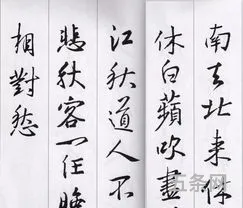 南去北来休
休白蘋吹盡
江秋道人不
悲秋客一任晚
相對愁